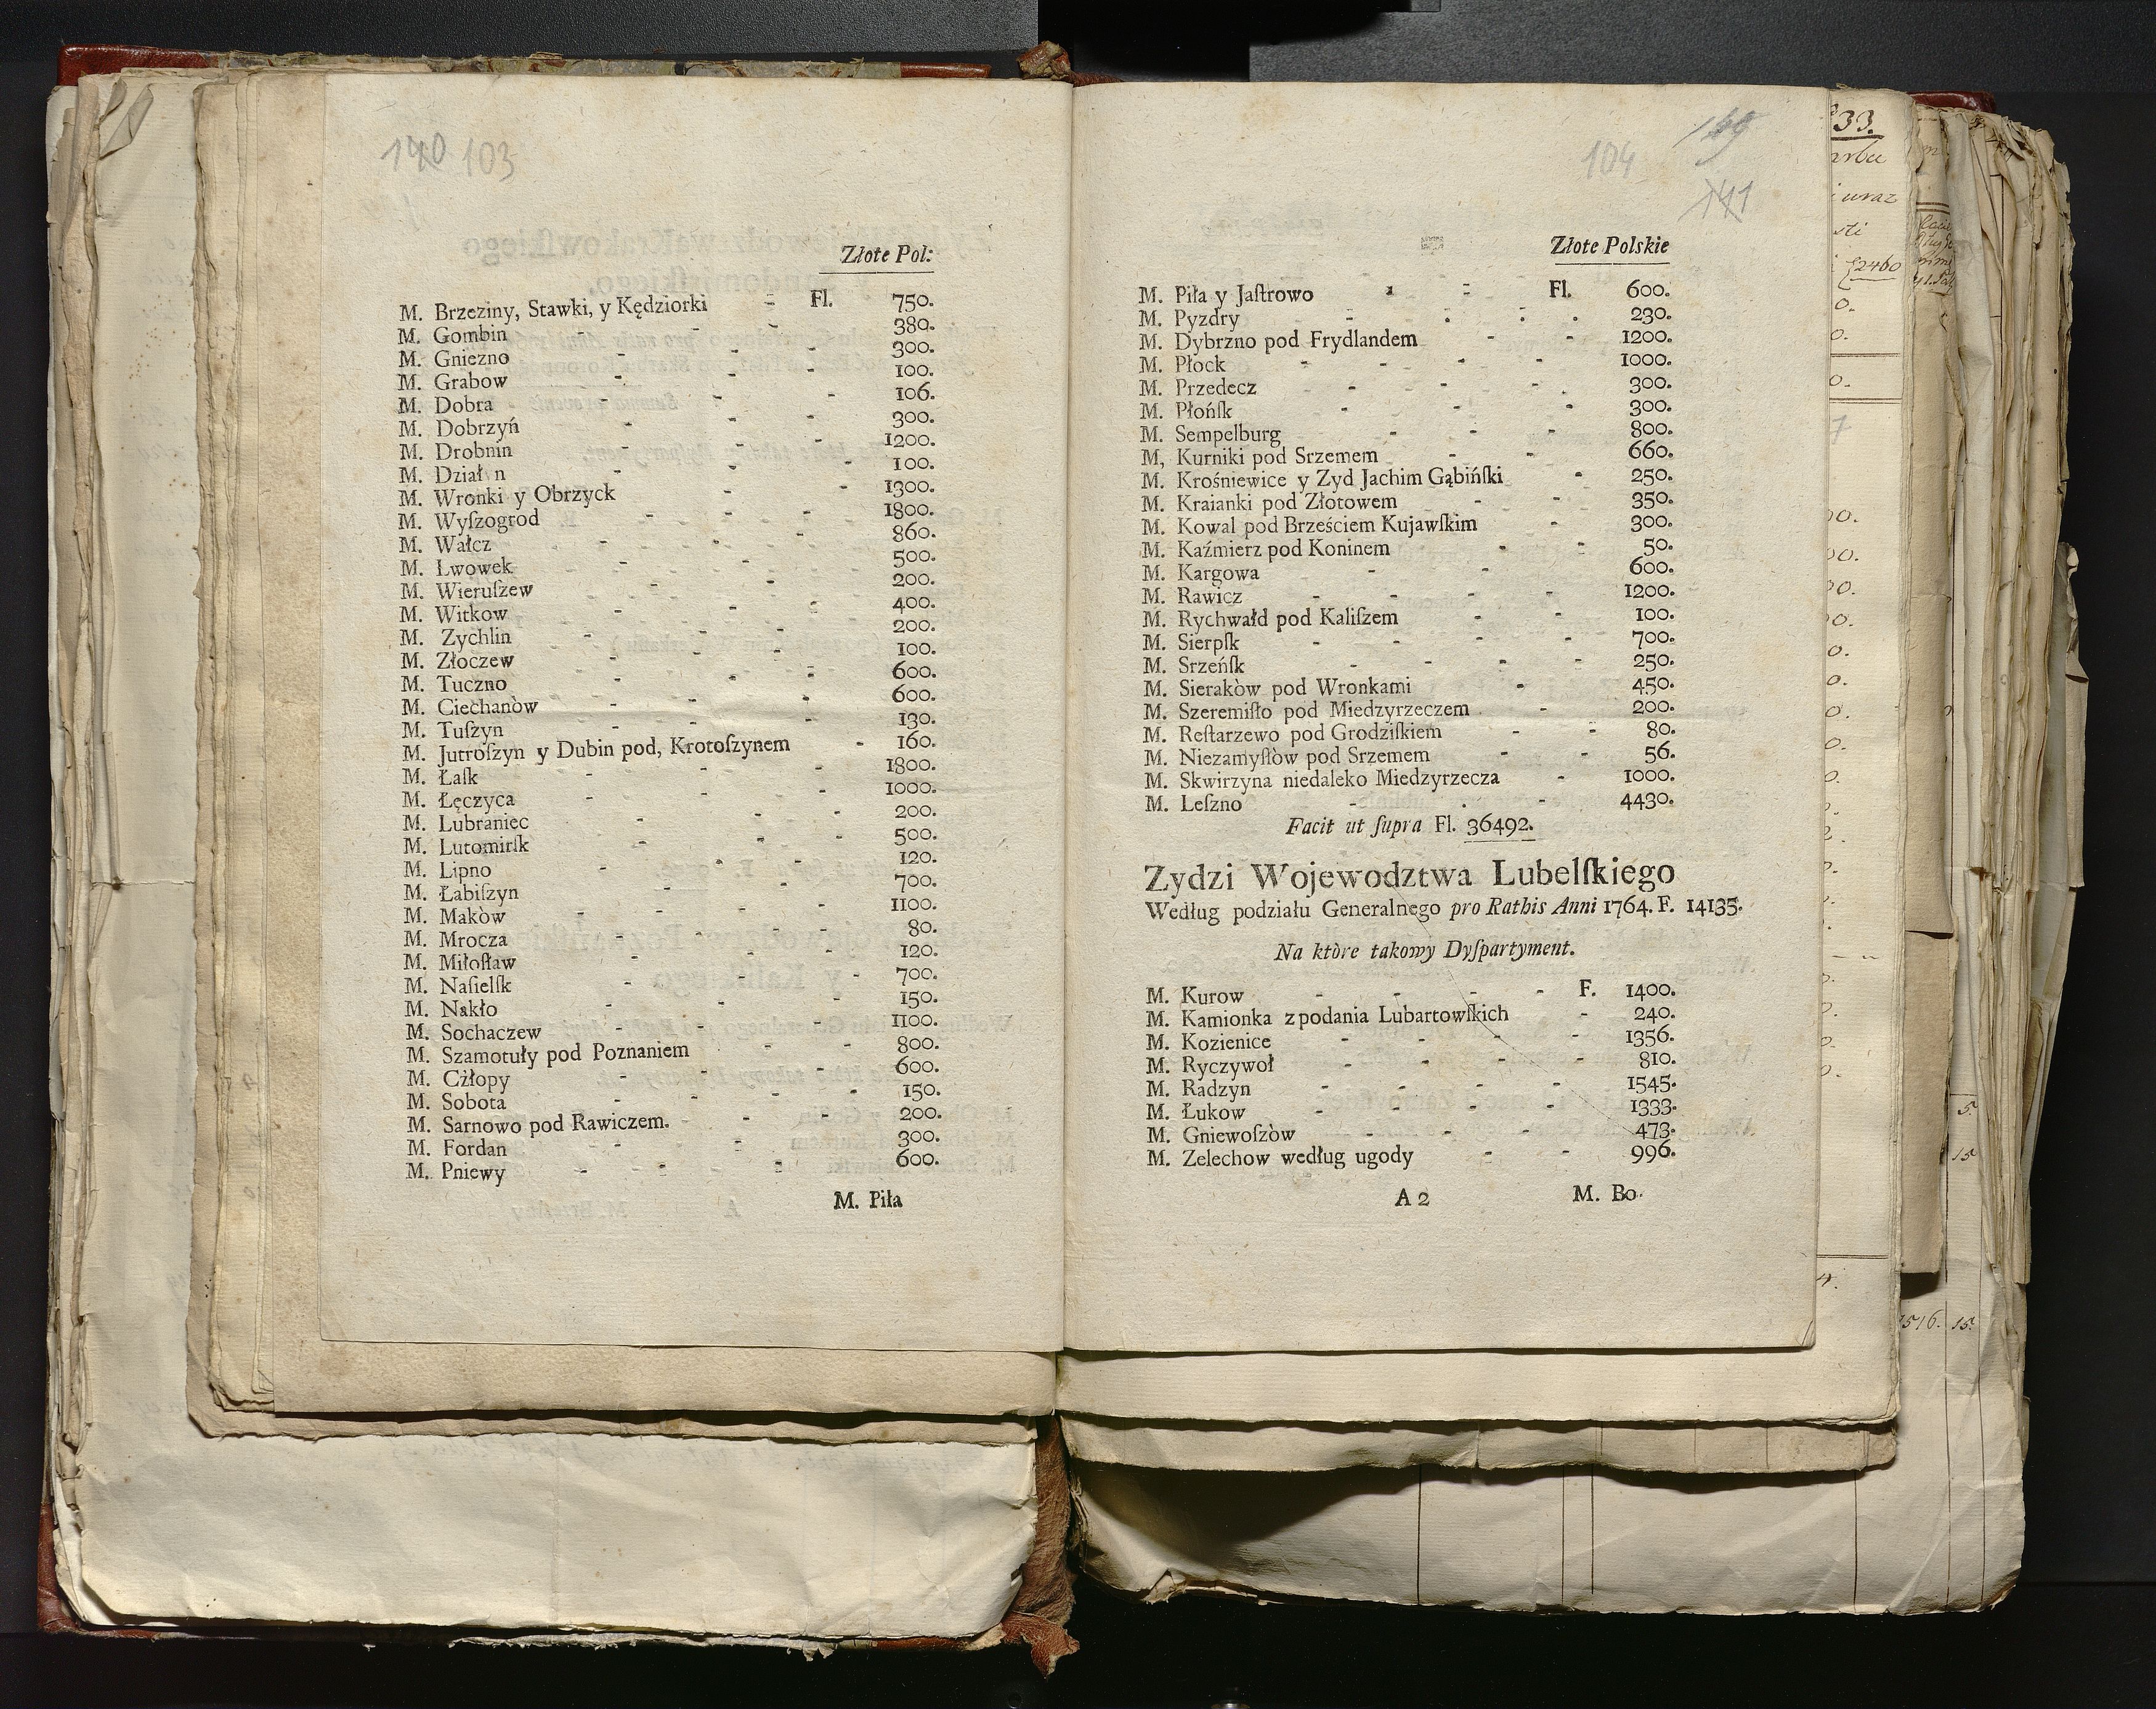 103
Złote Pol:
M. Brzeziny, Stawki, y Kędziorki - Fl. 750.
M. Gombin - - - 380.
M. Gniezno - - - 300.
M. Grabow - - - 100.
M. Dobra - - - 106.
M. Dobrzyń - - - 300.
M. Drobnin - - - 1200.
M. Dział n - - - 100.
M. Wronki y Obrzyck - - 1300.
M. Wyſzogrod - - - 1800.
M. Wałcz - - - 860.
M. Lwowek - - - 500.
M. Wieruſzew - - - 200.
M. Witkow - - - 400.
M. Zychlin - - - 200.
M. Złoczew - - - 100.
M. Tuczno - - - 600.
M. Ciechanòw - - - 600.
M. Tuſzyn - - - 130.
M. Jutroſzyn y Dubin pod, Krotoſzynem - 160.
M. Łaſk - - - 1800.
M. Łęczyca - - - 1000.
M. Lubraniec - - - 200.
M. Lutomirſk - - - 500.
M. Lipno - - - 120.
M. Łabiſzyn - - - 700.
M. Makòw - - - 1100.
M. Mrocza - - - 80.
M. Miłoſław - - - 120.
M. Naſielſk - - - 700.
M. Nakło - - - 150.
M. Sochaczew - - - 1100.
M. Szamotuły pod Poznaniem - - 800.
M. Człopy - - - 600.
M. Sobota - - - 150.
M. Sarnowo pod Rawiczem. - - 200.
M. Fordan - - - 300.
M. Pniewy - - - 600.
M. Piła
104
Złote Polskie
M. Piła y Jaſtrowo - - Fl. 600.
M. Pyzdry - - - 230.
M. Dybrzno pod Frydlandem - - 1200.
M. Płock - - - 1000.
M. Przedecz - - - 300.
M. Płońſk - - - 300.
M. Sempelburg - - - 800.
M, Kurniki pod Srzemem - - 660.
M. Krośniewice y Zyd Jachim Gąbińſki - 250.
M. Kraianki pod Złotowem - - 350.
M. Kowal pod Brześciem Kujawſkim - 300.
M. Kaźmierz pod Koninem - - 50.
M. Kargowa - - - 600.
M. Rawicz - - - 1200.
M. Rychwałd pod Kaliſzem - - 100.
M. Sierpſk - - - 700.
M. Srzeńſk - - - 250.
M. Sierakòw pod Wronkami - 450.
M. Szeremiſło pod Miedzyrzeczem - 200.
M. Reſtarzewo pod Grodziſkiem - - 80.
M. Niezamyſłòw pod Srzemem - - 56.
M. Skwirzyna niedaleko Miedzyrzecza - 1000.
M. Leſzno - - - 4430.
Facit ut ſupra Fl. 36492.
Zydzi Wojewodztwa Lubelſkiego
Według podziału Generalnego pro Rathis Anni 1764. F. 14135.
Na ktòre takowy Dyſpartyment.
M. Kurow - - - F. 1400.
M. Kamionka z podania Lubartowſkich - 240.
M. Kozienice - - - 1356.
M. Ryczywoł - - - 810.
M. Radzyn - - - 1545.
M. Łukow - - - 1333.
M. Gniewoſzòw - - - 473.
M. Zelechow według ugody - - 996.
A 2 M. Bo-
33.